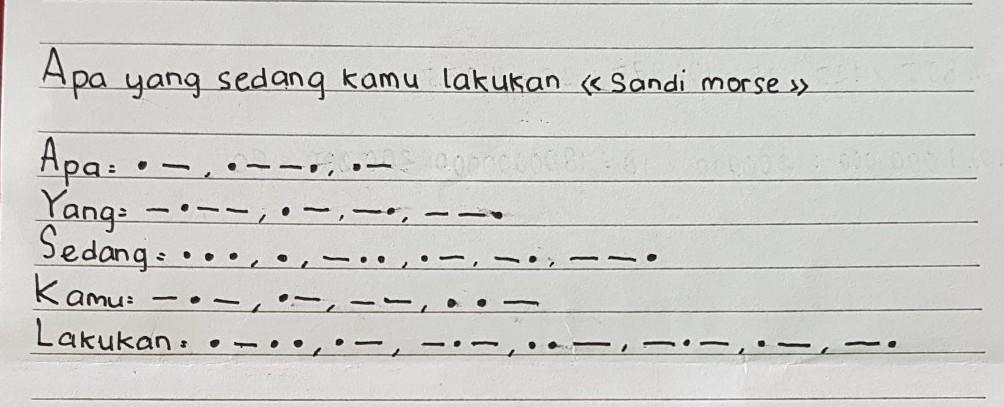 Apa yang sedang kamu lakukan « Sandi morse »
Apa: • — , • — — • , • —
Yang: — • — — , • — , — • , — — •
Sedang: • • • , • , — • • , • — , — • , — — •
Kamu: — • — , • — , — — , • • —
Lakukan: • — • • , • — , — • — , • • — , — • — , • — , — •